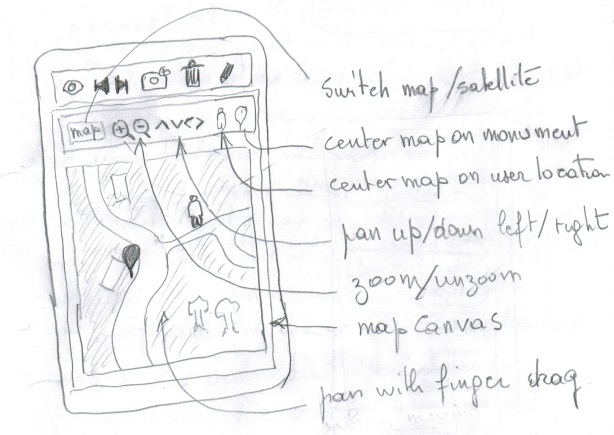 switch map/satellite
map
center map on monument
center map on user location
pan up/down left/right
zoom/unzoom
map canvas
pan with finger drag